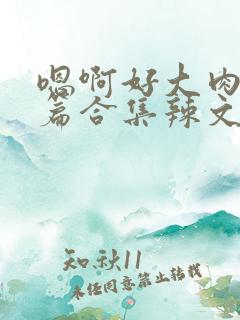 嗯啊好大肉
篇合集辣文
知秋11
未经同意禁止转载